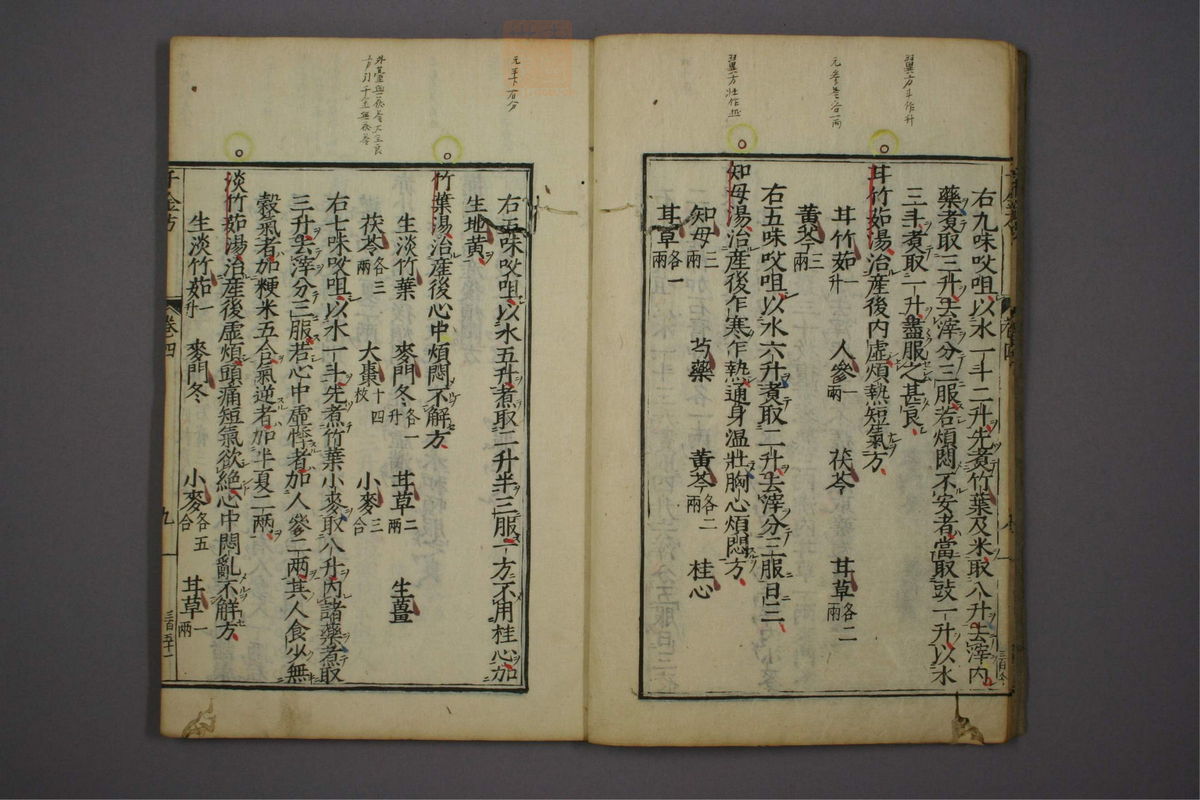 翼方斗作升
右九味㕮咀以水一斗二升先煮竹葉及米取八升去滓内
藥煮取三升去滓分三服若煩悶不安者當取豉一升以水
三斗煮取一升盡服之甚良
耳竹茹湯治産後内虛煩熱短氣方
耳竹茹一升 人參一兩 茯苓 耳草各二兩
黄芩三兩
右五味㕮咀以水六升煮取二升去滓分三服日三
知母湯治産後乍寒乍熱通身温壯胸心煩悶方
知母三兩 芍藥 黄芩各二兩 桂心
耳草各一兩
右五味㕮咀以水五升煮取二升半三服一方不用桂心加
生地黄
竹葉湯治産後心中煩悶不解方
生淡竹葉 麥門冬各一升 耳草二兩 生薑
茯苓各三兩 大棗十四枚 小麥三合
右七味㕮咀以水一斗先煮竹葉小麥取八升内諸藥煮取
三升去滓分三服若心中虛悸者加人參二兩其人食少無
穀氣者加粳米五合氣逆者加半夏二兩
淡竹茹湯治産後虛煩頭痛短氣欲絶心中悶亂不解方
生淡竹茹一升 麥門冬 小麥各五合 耳草一兩
千金方 卷四 九 三百五十一